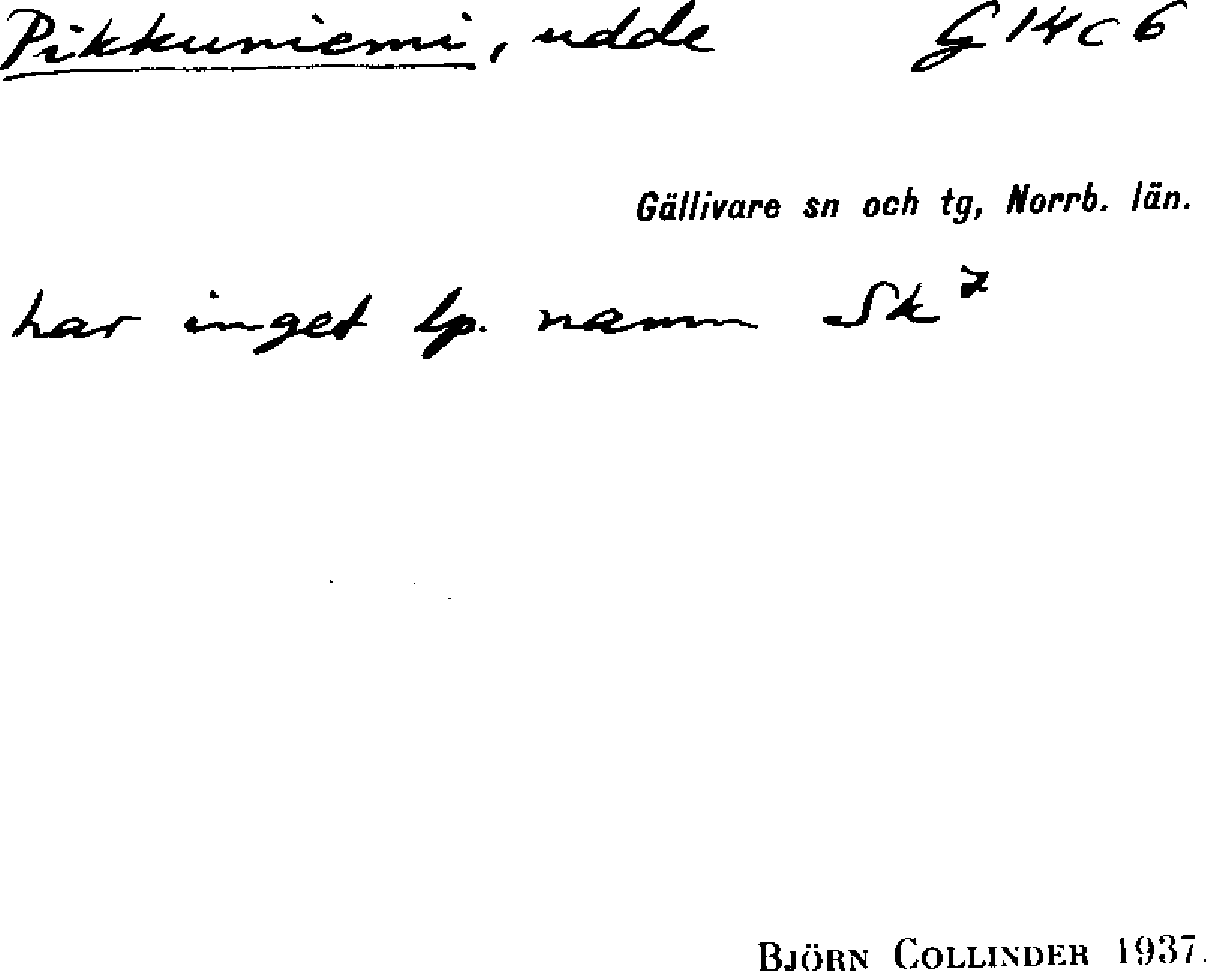 Pikkuniemi, udde G 14 c 6
Gällivare sn och tg, Norrb. län.
har inget lp. namn Sk
BJÖRN COLLINDER 1937.